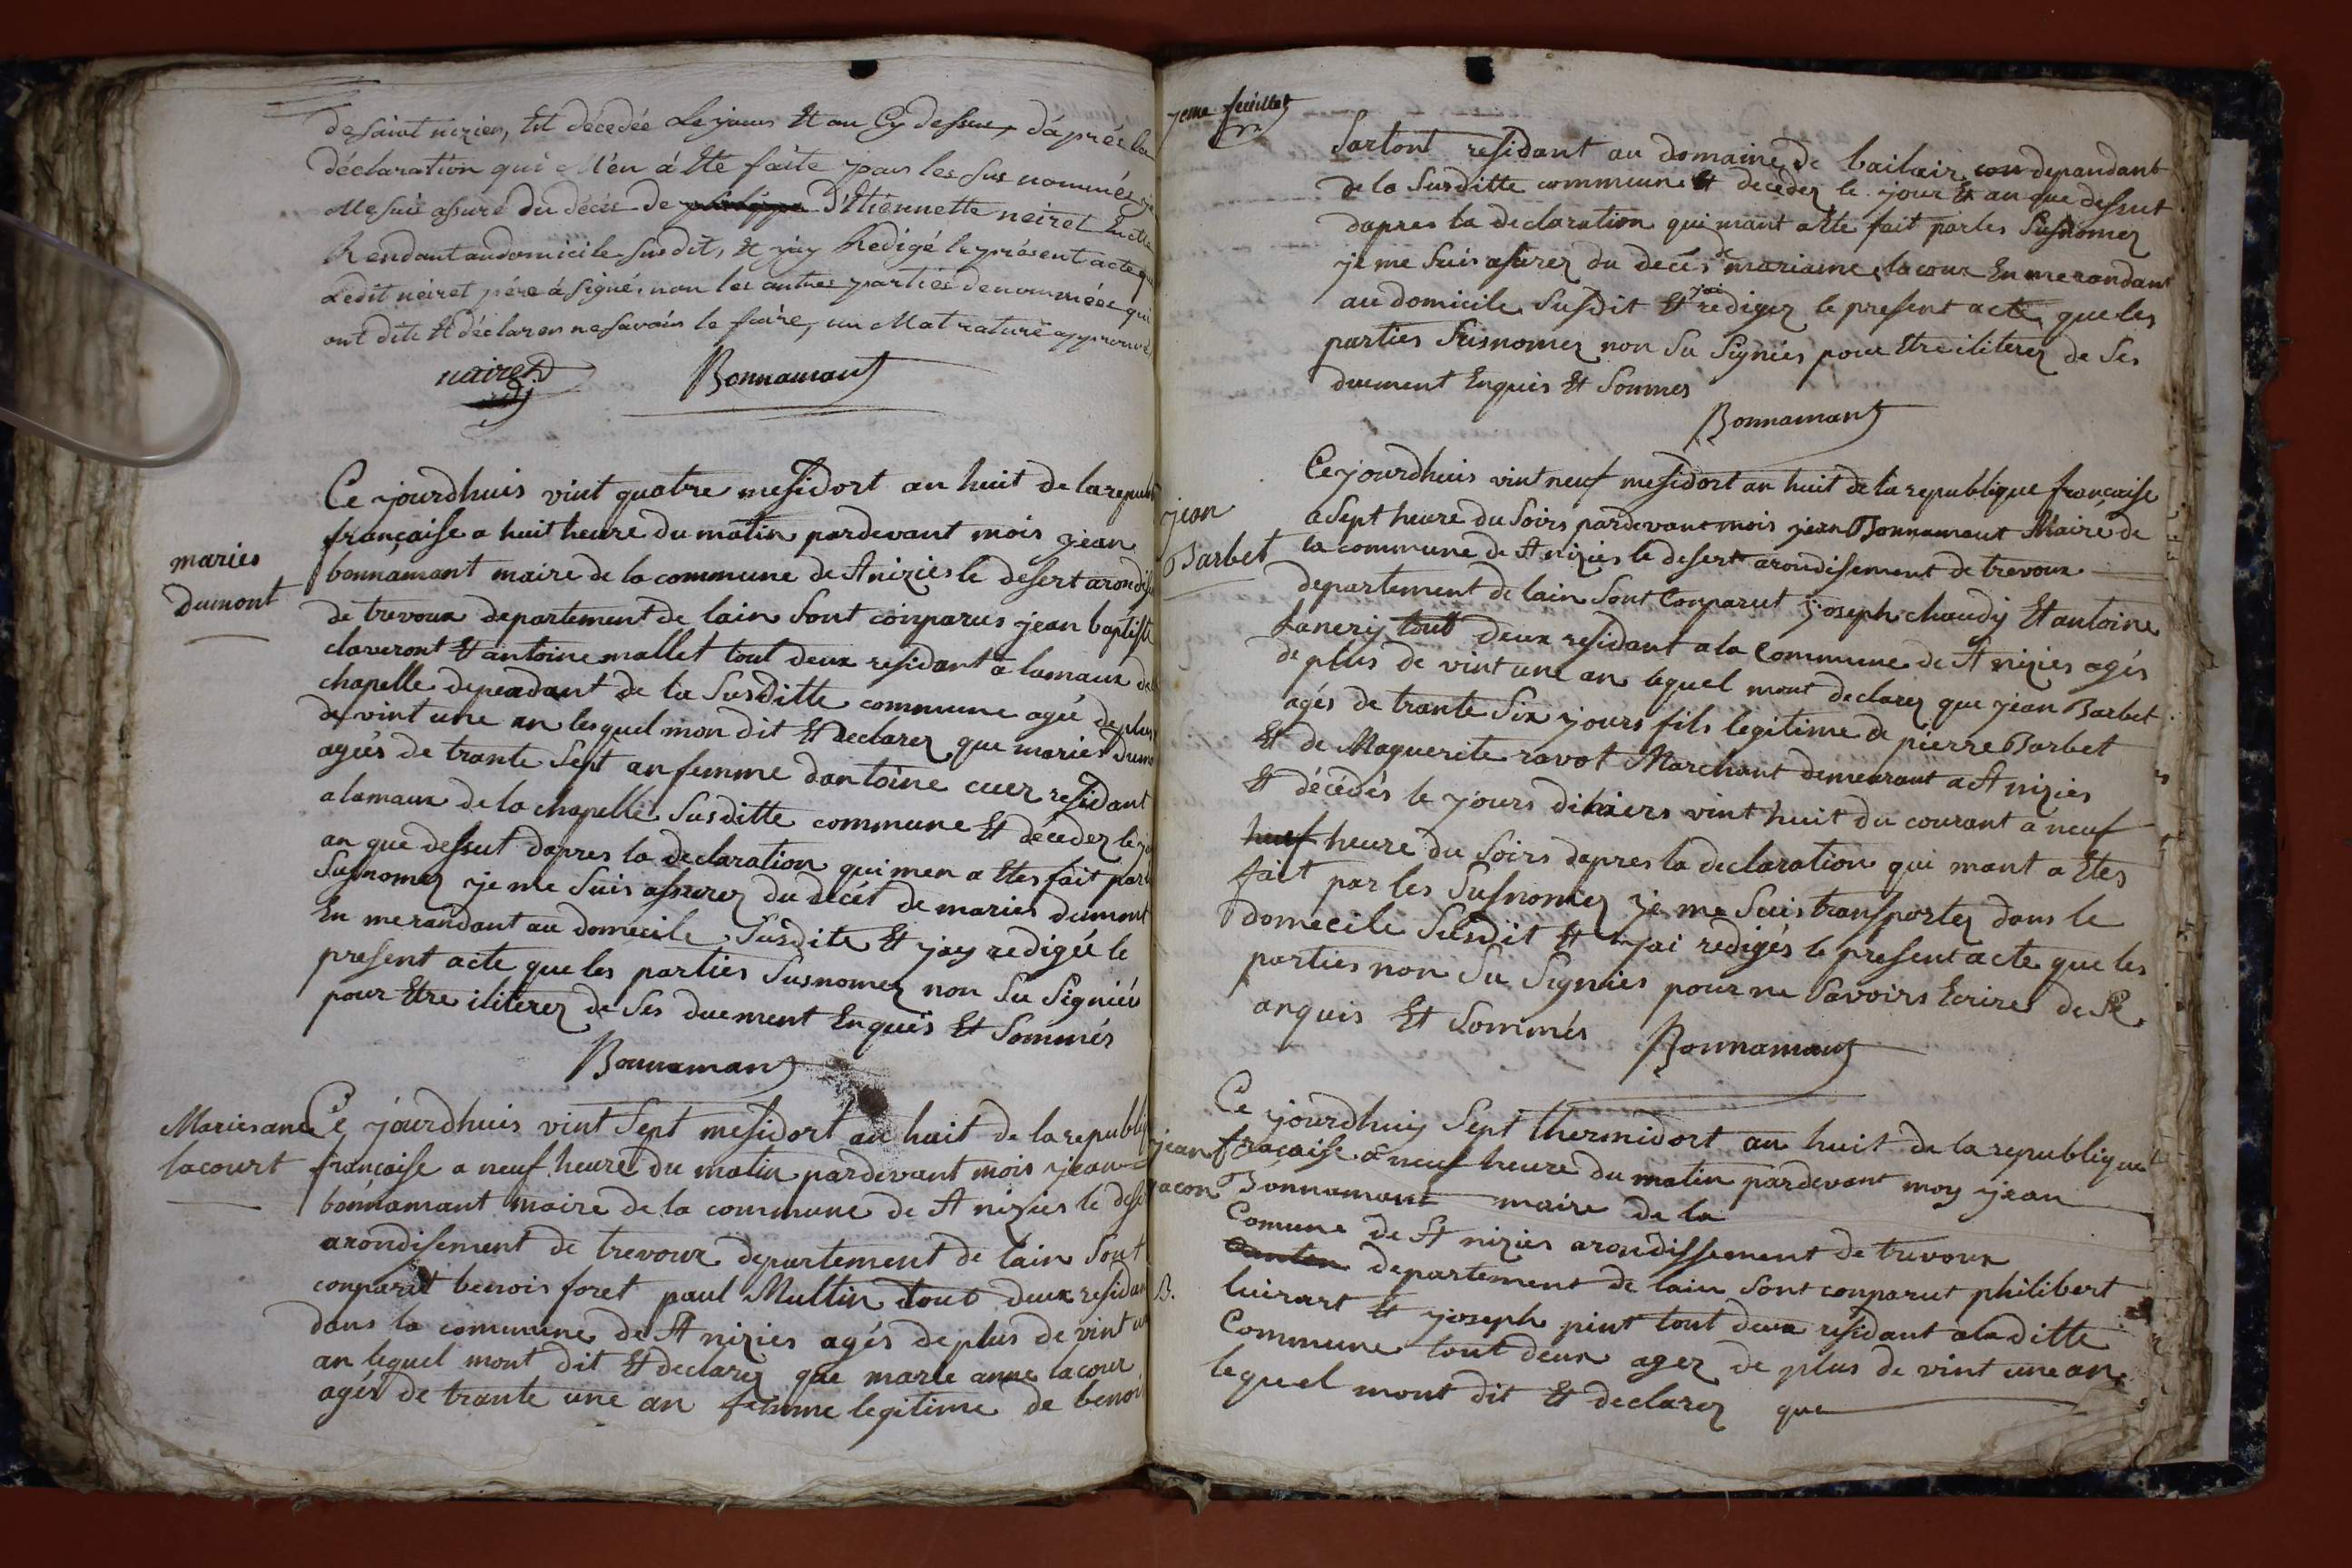 de saint nizier, Est décedée Le jour Et an Cy dessus, d'aprés la
déclaration qui M'en á Eté faite par les sus nommés je
Me suis assuré du décés de philippe d'Etiennette neiret En me
Rendant au domicile susdit, Et j'ay Redigé le présent acte que
Ledit neiret pére á signé, non les autres parties denommées qui
ont dite Et déclaré ne savoir le faire, un Mot raturé approuvé
nairet
Bonnamant
maries
dumont
Ce jourdhuis vint quatre mesidort an huit de la republi
française a huit heure du matin pardevant mois jean
bonnamant maire de la commune de St niziés le desert arondis
de trevoux departement de lain sont conparus jean baptiste
claveront Et antoine mallet tout deux residant a lamaux de
chapelle dependant de la susditte commune agée de plus
de vint une an lesquel mon dit Et declarez que maries dumo
agés de trante sept an femme dantoine cuer residant
a lamaux de la chapelle susditte commune Et décedez le jo
an que dessut dapres la declaration qui men a Etes fait par
susnomez je me suis assurez du decét de maries dumont
En me randant au domicile susdite Et jay redigée le
present acte que les parties susnomez non su signiés
pour Etre iliterez de ses duement Enquis Et sommés
Bonnamant
Maries anne
lacourt
Ce jourdhuis vint sept mesidort an huit de la republiq
française a neuf heure du matin pardevant mois jean
bonnamant maire de la commune de St niziés le dese
arondisement de trevoux departement de lain sont
conparut benois foret paul Multin tout deux residan
dans la commune de St niziés agés de plus de vint un
an lequel mont dit Et declarez que marie anne lacour
agés de trante une an femme legitime de benoi
7eme feuillet
Sartont residant au domaine de bailair con depandant
de la susditte commune Et decedez le jour Et an que dessut
dapres la declaration qui mant a Eté fait par les susnomez
je me suis assurez du decés de mariame lacour En me randant
au domicile susdit Et jai redigez le present acte que les
parties susnomez non su signiés pour Etre iliterez de ses
duement Enquis Et sommes
Bonnamant
jean
Barbet
Ce jourdhuis vint neuf mesidort an huit de la republique française
a sept heure du soirs pardevant mois jean Bonnamant Maire de
la commune de St niziés le desert arondisement de trevoux
departement de lain sont Conparut joseph chaudy Et antoine
lanery tout deux residant a la Commune de St niziés agés
de plus de vint une an lequel mont declarez que jean Barbet
agés de trante six jours fils legitime de pierre Barbet
Et de Maguerite ravot Marchant demeurant a St niziés
Et décédés le jours dihiers vint huit du courant a neuf
huef heure du soirs dapres la declaration qui mant a Etes
fait par les susnomez je me suis transportez dans le
domecile susdit Et jai redigés le present acte que les
parties non su signiés pour ne savoirs Ecrires de se
anquis Et sommés
Bonnamant
jean
jacon
Ce jourdhuy sept thermidort an huit de la republique
fracaise a neuf heure du matin pardevant moy jean
Bonnamant maire de la
Comune de St niziés arondissement de trevoux
Canton departement de lain sont conparut philibert
B.
luirart Et joseph pint tout deux residant a la ditte
Commune tout deux agez de plus de vint une an
lequel mont dit Et declarez que